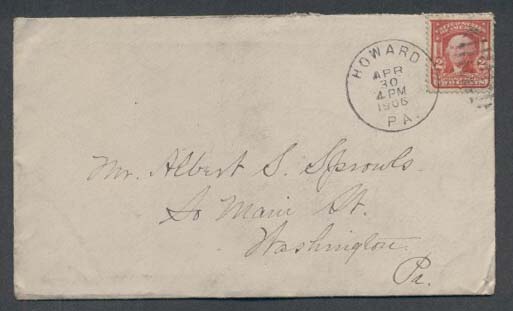 HOWARD
APR
30
4 PM
1906
PA.
2 2
Mr. Albert S. Sprowls.
So Main St.
Washington.
Pa.